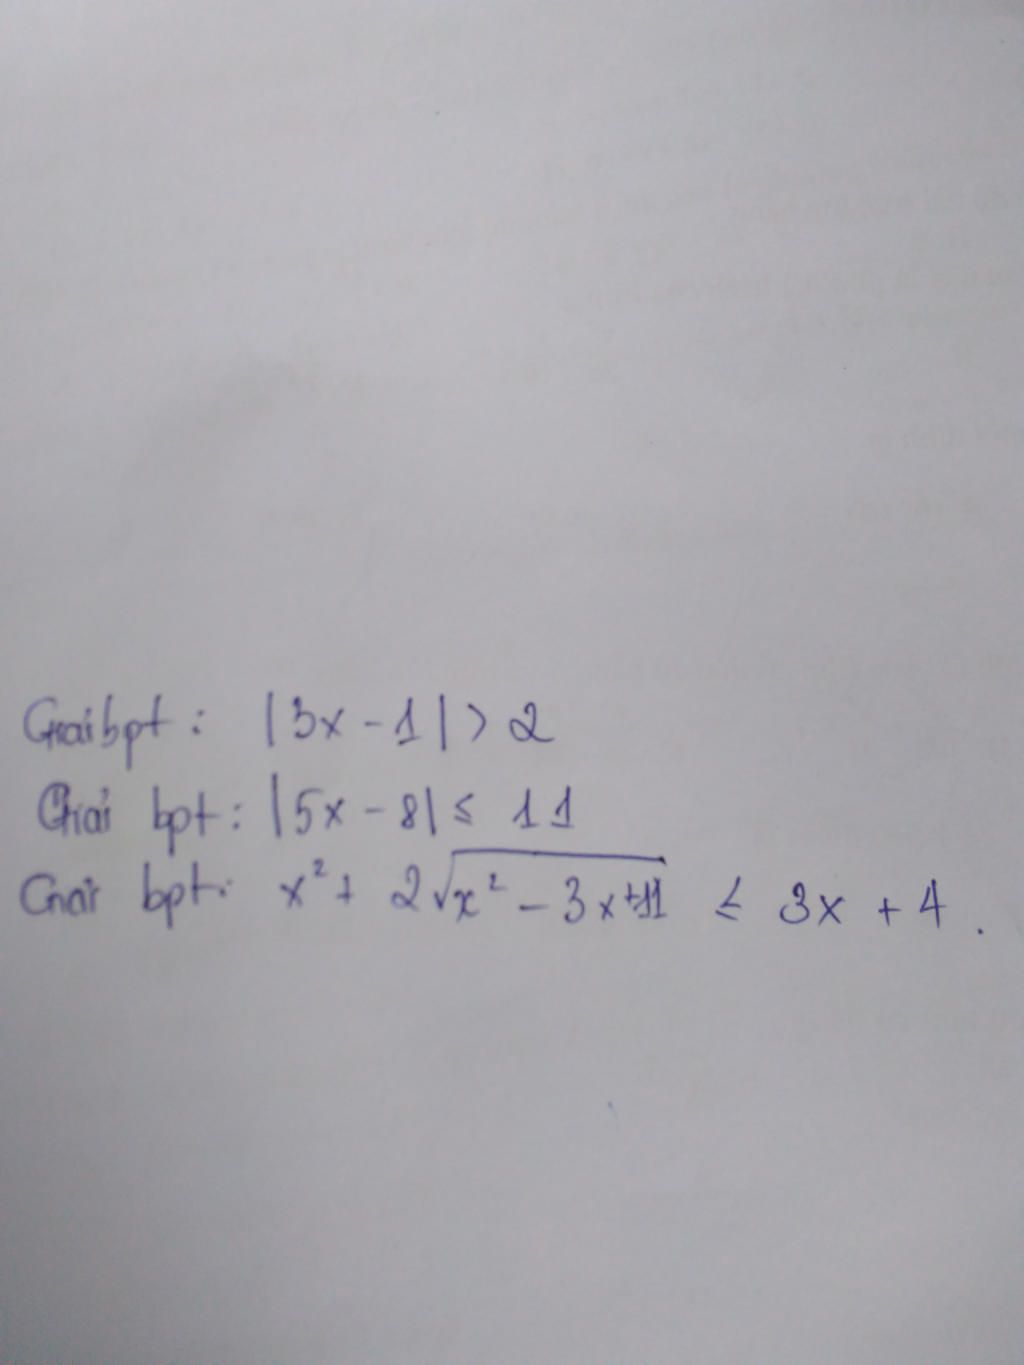 Giải bpt: |3x - 1| > 2
Giải bpt: |5x - 8| ≤ 11
Giải bpt: x² + 2√(x² - 3x + 11) ≤ 3x + 4.